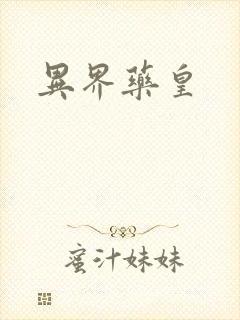 異界藥皇
蜜汁妹妹